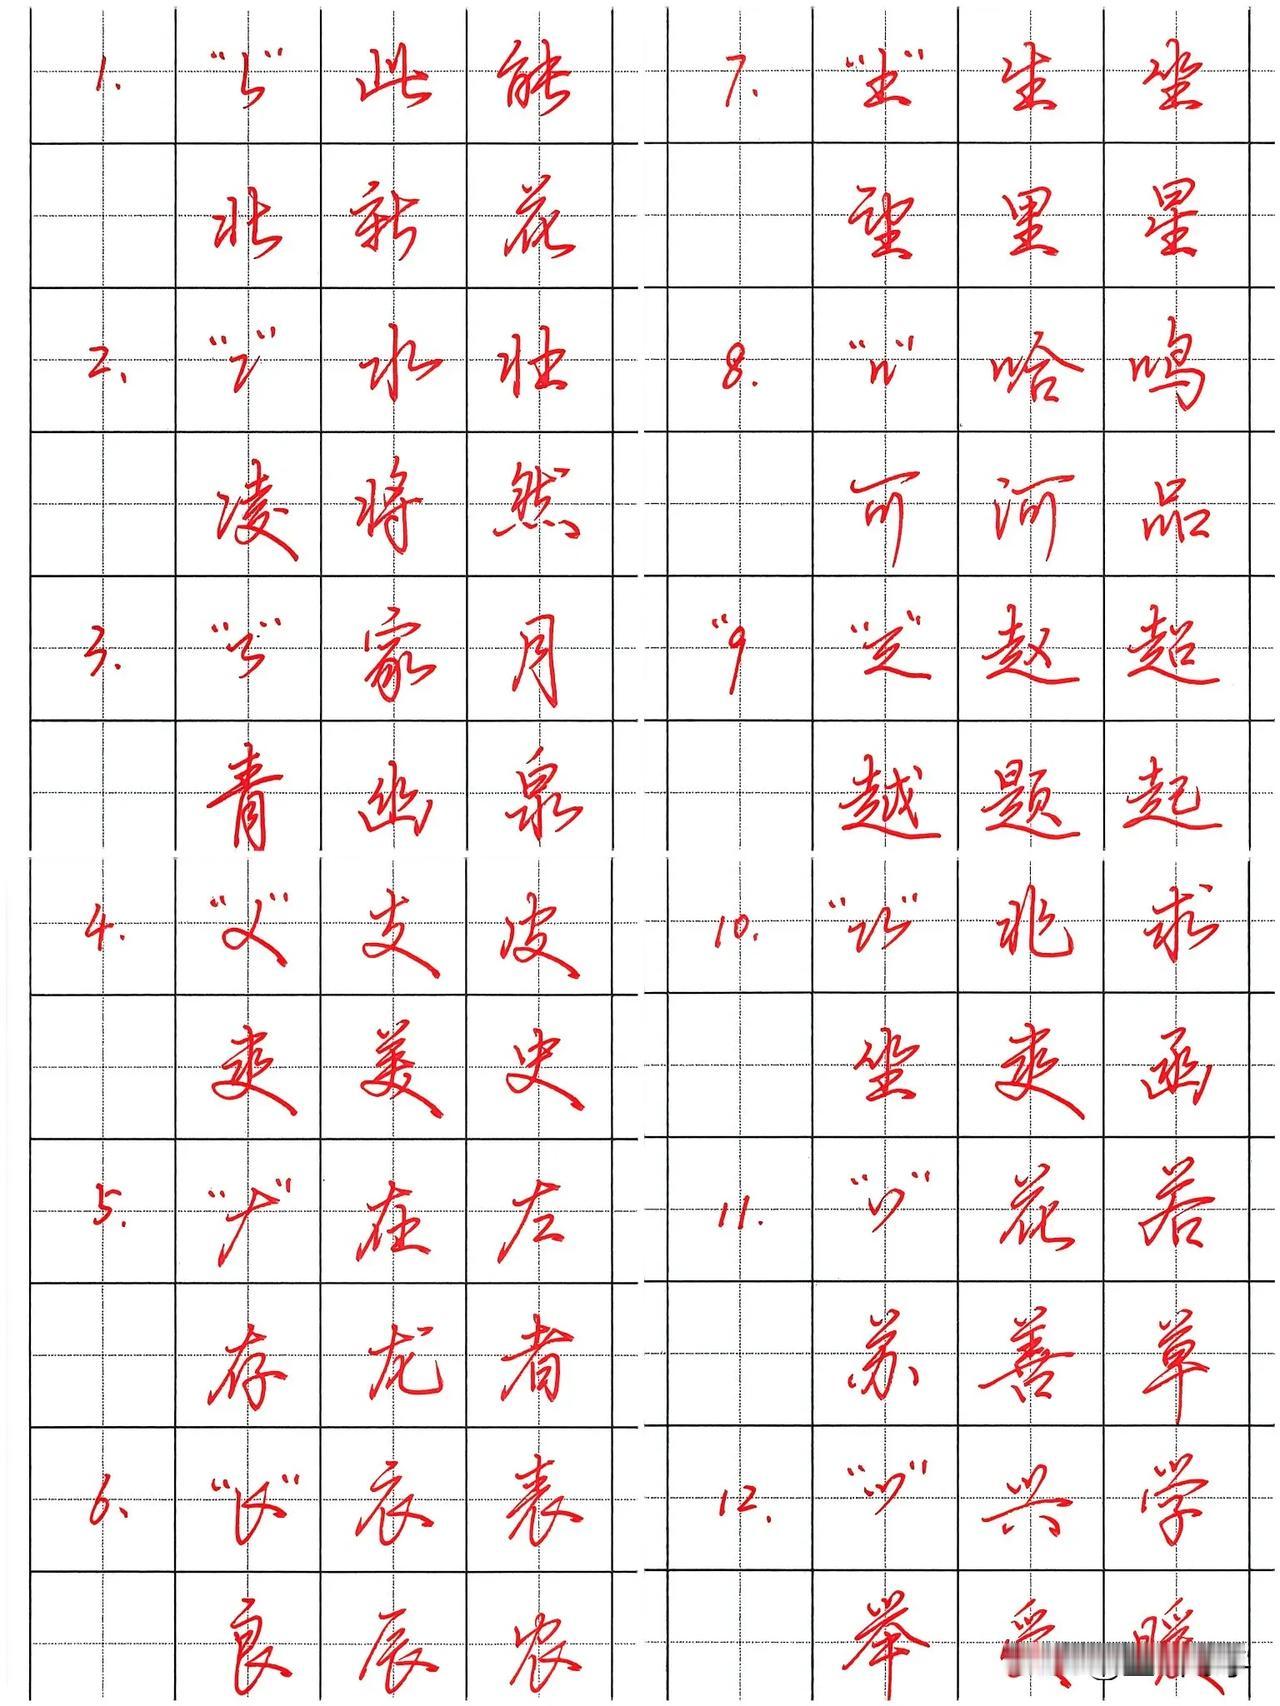 1. “㇙” 此 能
北 新 花
2. 水 壮
凌 将 然
3. 家 月
青 幽 泉
4. 支 皮
爽 美 史
5. “𠂇” 在 左
存 龙 者
6. 衣 表
良 辰 农
7. “土” 生 坐
望 里 星
8. “ıı” 哈 鸣
可 河 品
“9 赵 超
越 题 起
10. 兆 求
坐 爽 函
11. “丷” 花 若
苏 善 草
12. “⺍” 兴 学
举 爱 暖